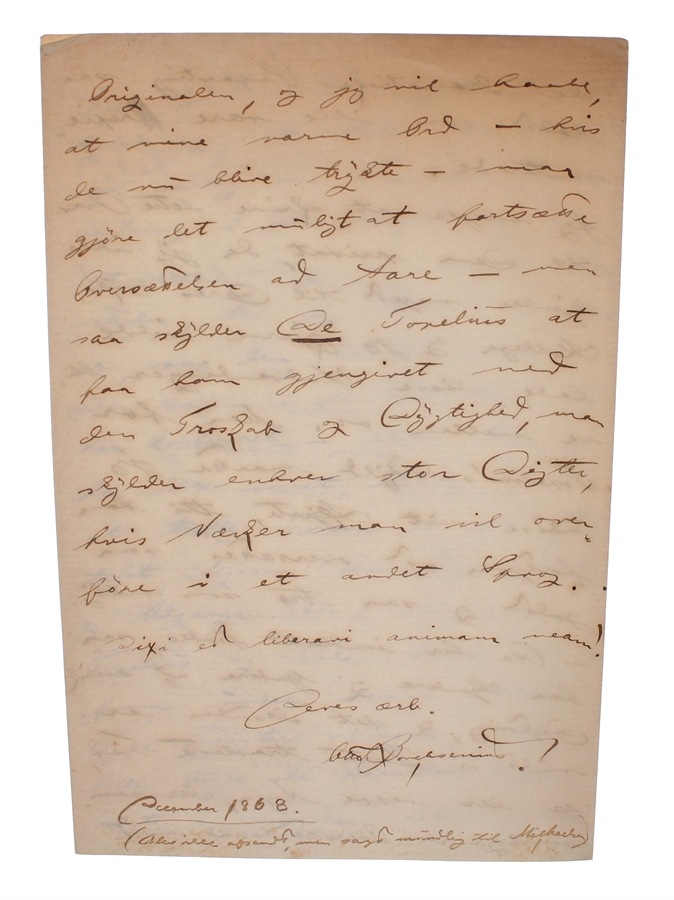 Originalen, og jeg vil haabe,
at mine varme Ord — hvis
de nu blive trykte — maa
gjøre det muligt at fortsætte
Oversættelsen ad Aare — men
saa skylder De Topelius at
faa ham gjengivet med
den Troskab og Dygtighed, man
skylder enhver stor Digter,
hvis Værker man vil over-
före i et andet Sprog.
Dixi et liberavi animam meam!
Deres ærb.
Otto Borchsenius.
December 1868.
(Blev ikke afsendt, men sagt mündtlig til Michaelsen)